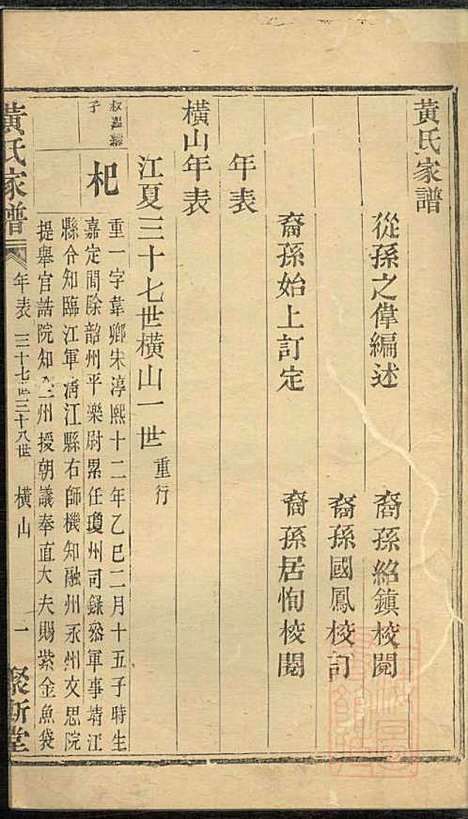 黃氏家譜
從孫之偉編述
裔孫紹鎮校閱
裔孫國鳳校訂
裔孫始上訂定
裔孫居恂校閱
年表
橫山年表
江夏三十七世橫山一世
重行
子
杞
重一字韋卿宋淳熙十二年乙巳二月十五子時生
嘉定間除韶州平樂尉累任瓊州司錄叅軍事靖江
縣令知臨江軍凊江縣右師機知融州永州文思院
提舉官誥院知二州授朝議奉直大夫賜紫金魚袋
黃氏家譜
年表
三十七世三十八世
橫山
一
聚新堂